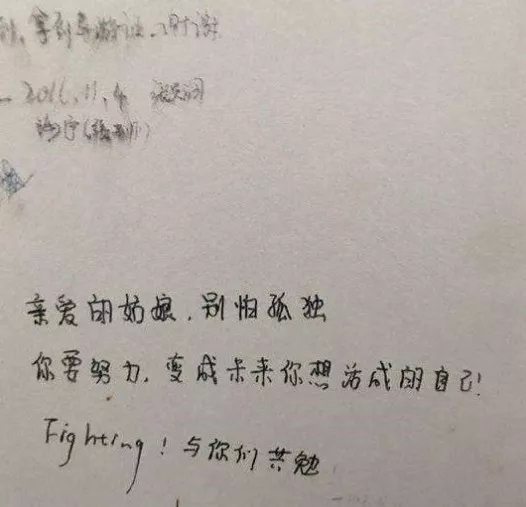 拿到导游证
2016.11.4
亲爱的姑娘,别怕孤独
你要努力,变成未来你想活成的自己!
Fighting!与你们共勉